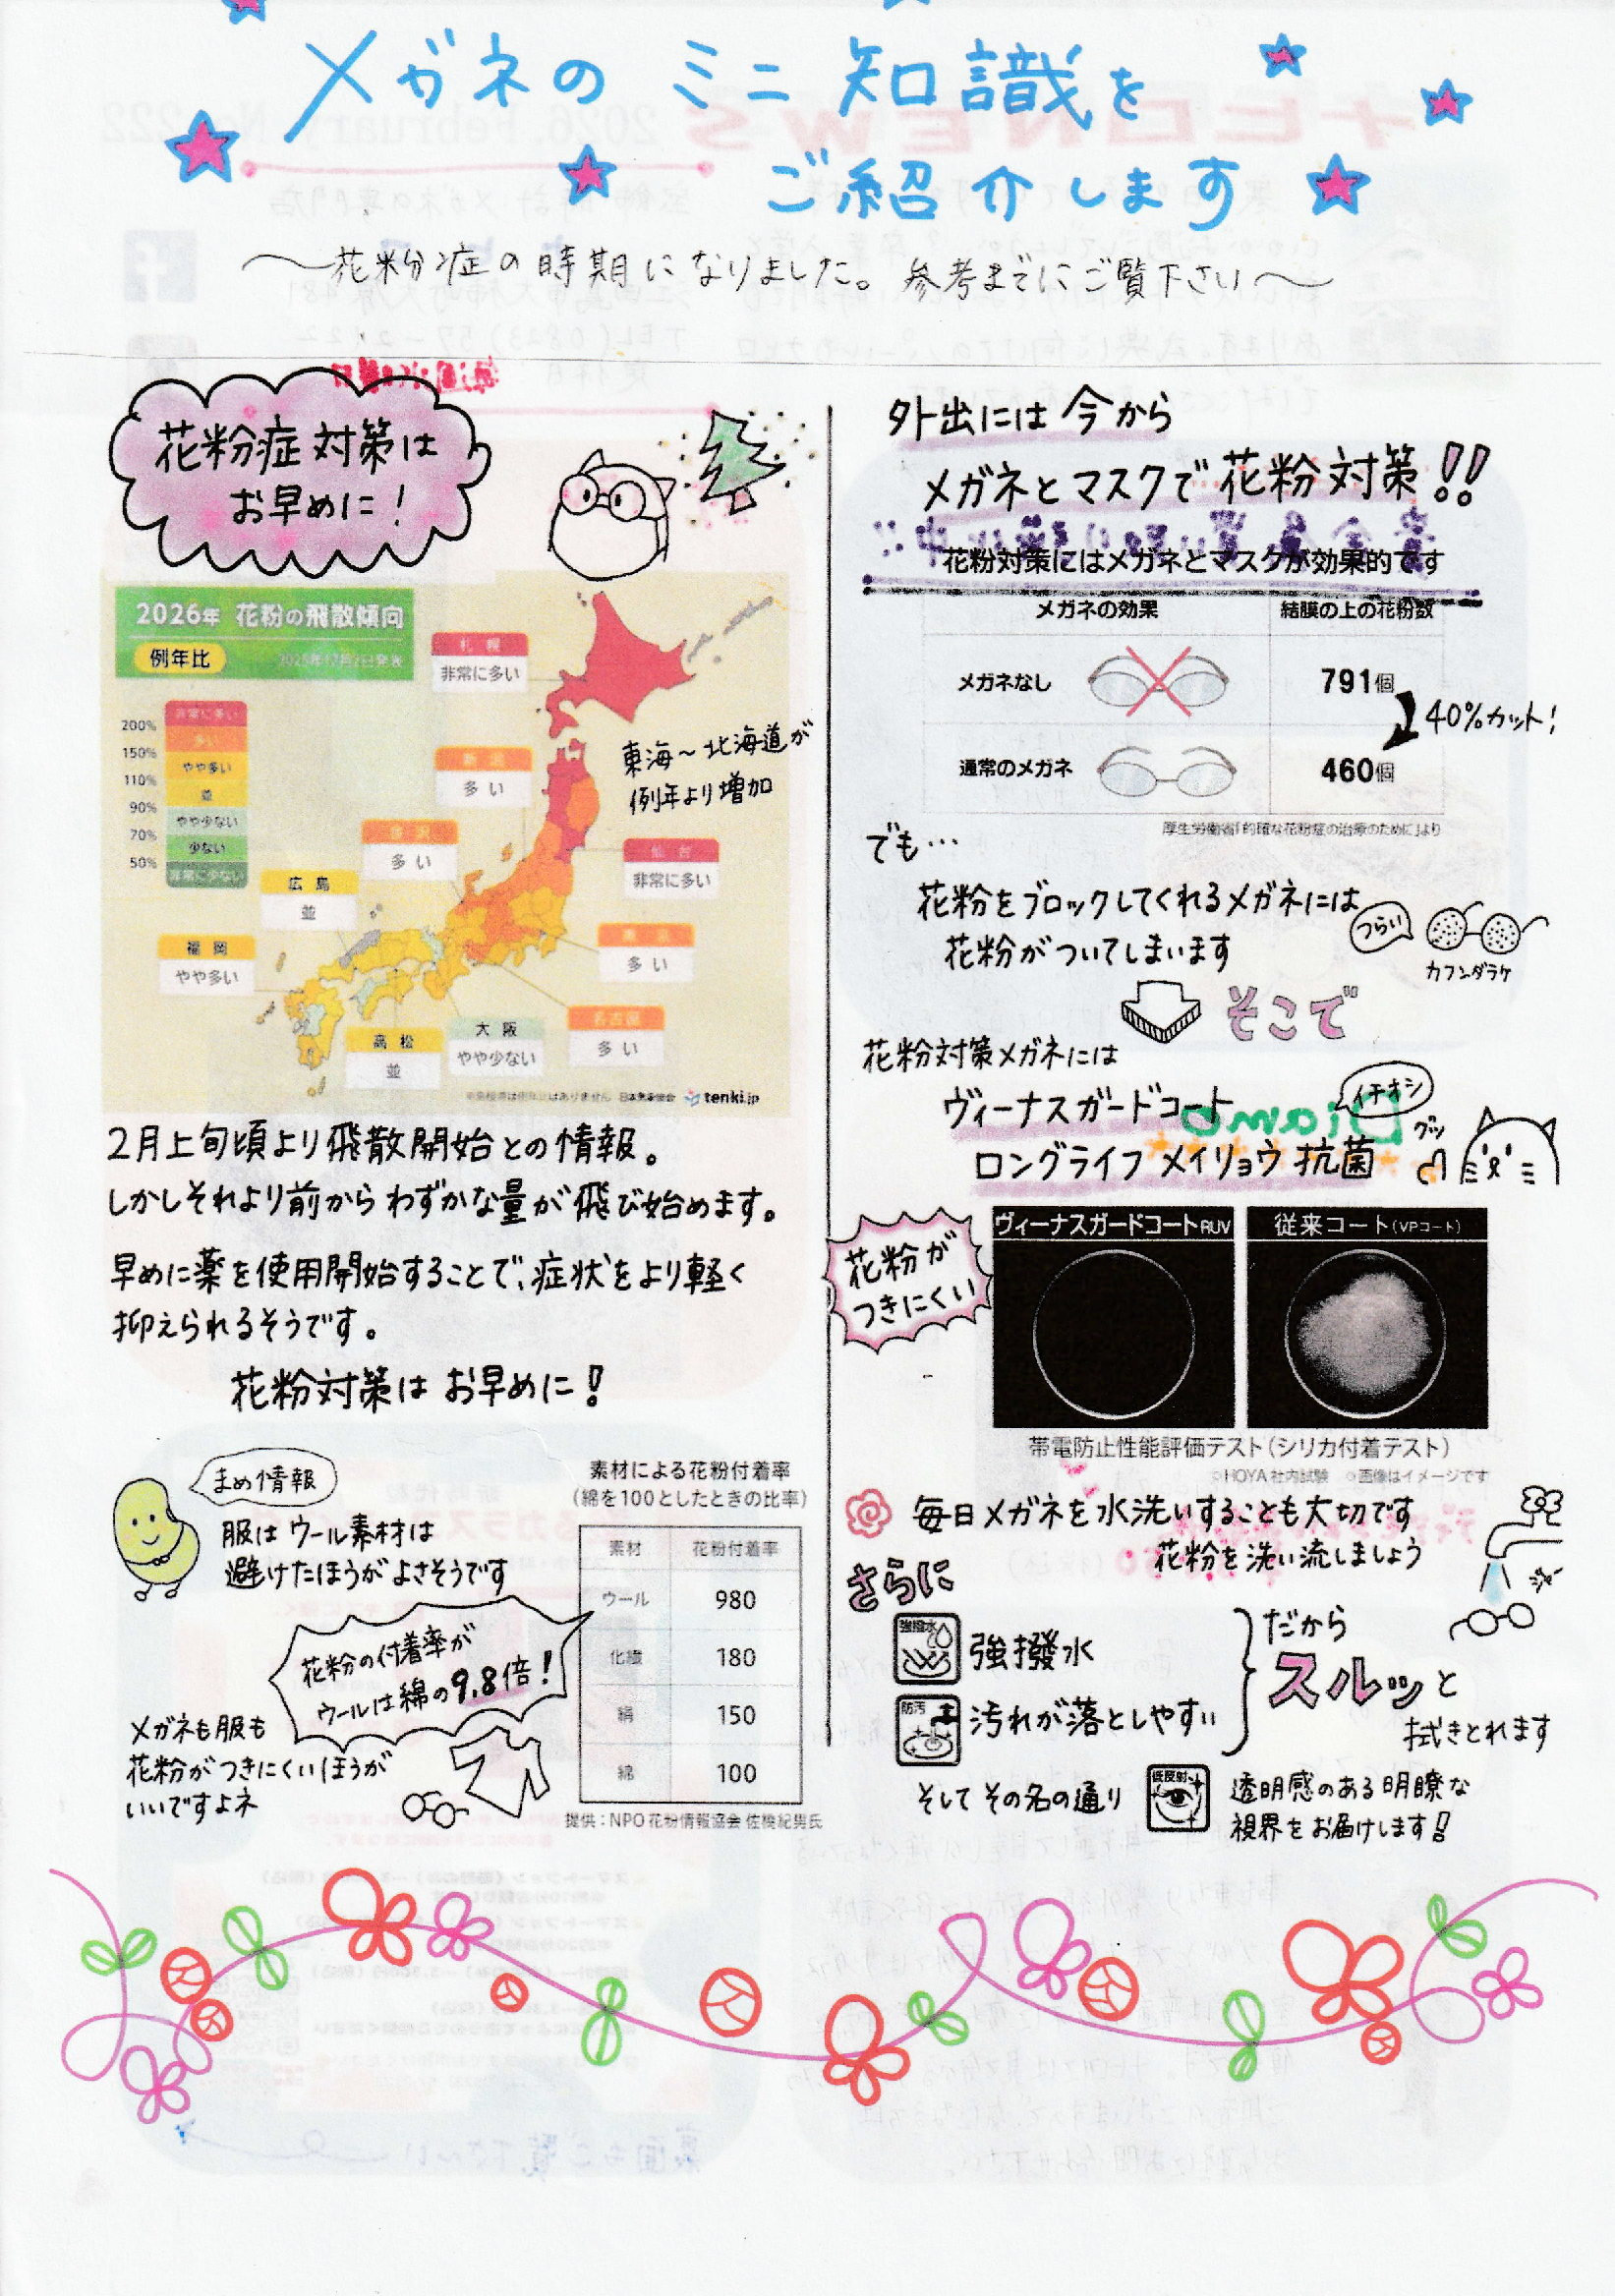 メガネのミニ知識を
ご紹介します
〜花粉症の時期になりました。参考までにご覧下さい〜
花粉症対策は
お早めに!
2026年 花粉の飛散傾向
例年比
2025年12月2日発表
非常に多い
200%
多い
150%
やや多い
110%
並
90%
やや少ない
70%
少ない
50%
非常に少ない
札幌
非常に多い
新潟
多い
東海〜北海道が
例年より増加
金沢
多い
仙台
非常に多い
広島
並
東京
多い
福岡
やや多い
名古屋
多い
大阪
やや少ない
高松
並
日本気象協会 tenki.jp
2月上旬頃より飛散開始との情報。
しかしそれより前からわずかな量が飛び始めます。
早めに薬を使用開始することで、症状をより軽く
抑えられるそうです。
花粉対策はお早めに!
まめ情報
服はウール素材は
避けたほうがよさそうです
花粉の付着率が
ウールは綿の9.8倍!
メガネも服も
花粉がつきにくいほうが
いいですよネ
素材による花粉付着率
(綿を100としたときの比率)
素材 花粉付着率
ウール 980
化繊 180
絹 150
綿 100
提供:NPO花粉情報協会 佐橋紀男氏
外出には今から
メガネとマスクで花粉対策!!
花粉対策にはメガネとマスクが効果的です
メガネの効果 結膜の上の花粉数
メガネなし 791個
40%カット!
通常のメガネ 460個
厚生労働省「的確な花粉症の治療のために」より
でも…
花粉をブロックしてくれるメガネには
花粉がついてしまいます
つらい
カフンダラケ
そこで
花粉対策メガネには
ヴィーナスガードコート
イチオシ
ロングライフ メイリョウ 抗菌
グッ
花粉が
つきにくい
ヴィーナスガードコートRUV
従来コート(VPコート)
帯電防止性能評価テスト(シリカ付着テスト)
○HOYA社内試験 ○画像はイメージです
毎日メガネを水洗いすることも大切です
花粉を洗い流しましょう
ジャー
さらに
強撥水
強撥水
防汚
汚れが落としやすい
だから
スルッと
拭きとれます
そしてその名の通り
低反射
透明感のある明瞭な
視界をお届けします!